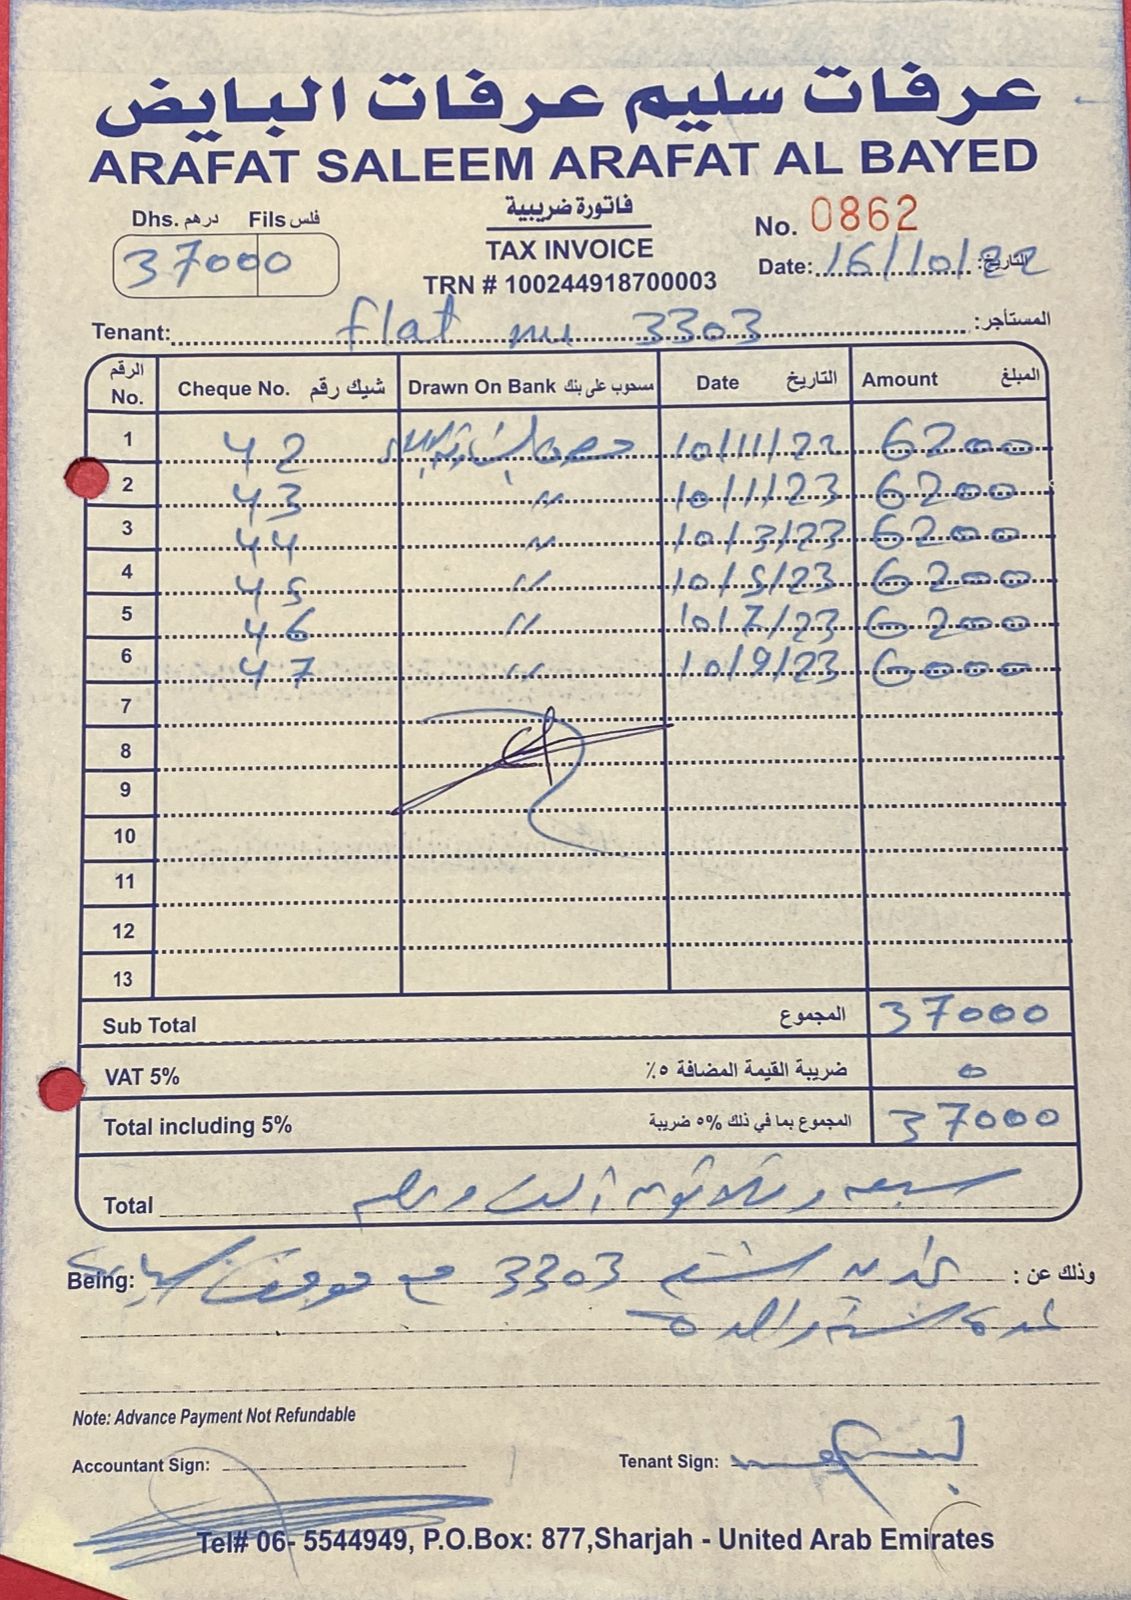 عرفات سليم عرفات البايض
ARAFAT SALEEM ARAFAT AL BAYED
Dhs. درهم Fils فلس
37000
فاتورة ضريبية
TAX INVOICE
TRN # 100244918700003
No. 0862
Date: 16/10/22 التاريخ:
Tenant: flat nu 3303 المستأجر:
الرقم No. Cheque No. شيك رقم Drawn On Bank مسحوب على بنك Date التاريخ Amount المبلغ
1 42 10/11/22 6200
2 43 " 10/1/23 6200
3 44 " 10/3/23 6200
4 45 " 10/5/23 6200
5 46 " 10/7/23 6200
6 47 " 10/9/23 6000
7
8
9
10
11
12
13
Sub Total المجموع 37000
VAT 5% ضريبة القيمة المضافة ٥٪ 0
Total including 5% المجموع بما في ذلك ٥% ضريبة 37000
Total سبعة وثلاثون ألف درهم
Being: 3303 مع موقف سيارة وذلك عن :
لمدة سنة واحدة
Note: Advance Payment Not Refundable
Accountant Sign:
Tenant Sign:
Tel# 06- 5544949, P.O.Box: 877,Sharjah - United Arab Emirates